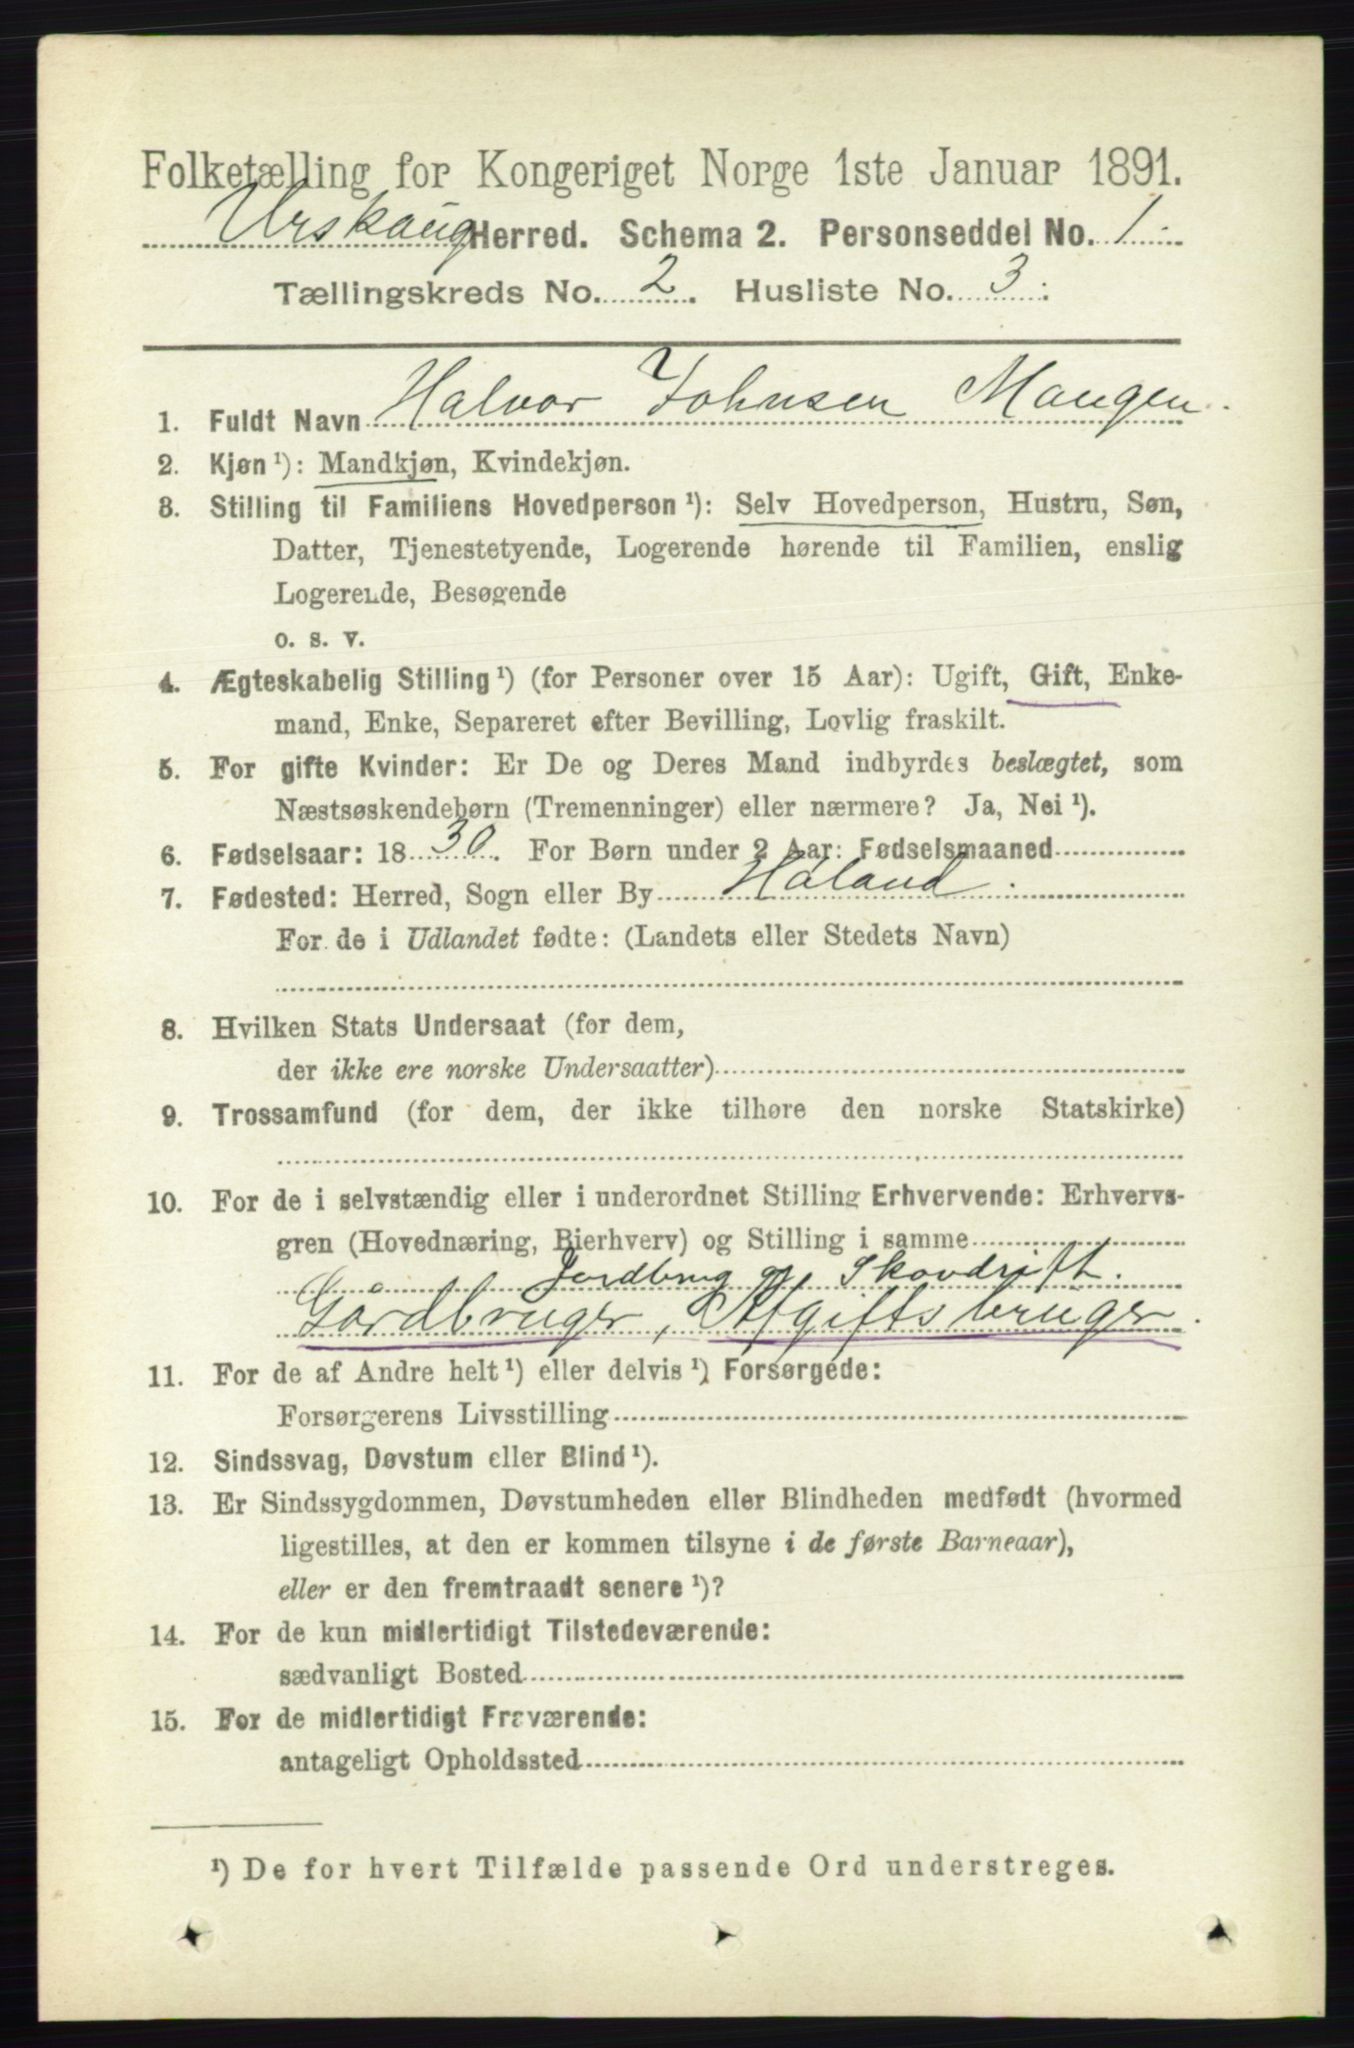 Folketælling for Kongeriget Norge 1ste Januar 1891.
Urskaug Herred. Schema 2. Personseddel No. 1.
Tællingskreds No. 2. Husliste No. 3.
1. Fuldt Navn Halvor Johnsen Mangen.
2. Kjøn ¹): Mandkjøn, Kvindekjøn.
3. Stilling til Familiens Hovedperson ¹): Selv Hovedperson, Hustru, Søn,
Datter, Tjenestetyende, Logerende hørende til Familien, enslig
Logerende, Besøgende
o. s. v.
4. Ægteskabelig Stilling ¹) (for Personer over 15 Aar): Ugift, Gift, Enke-
mand, Enke, Separeret efter Bevilling, Lovlig fraskilt.
5. For gifte Kvinder: Er De og Deres Mand indbyrdes beslægtet, som
Næstsøskendebørn (Tremenninger) eller nærmere? Ja, Nei ¹).
6. Fødselsaar: 1830. For Børn under 2 Aar: Fødselsmaaned
7. Fødested: Herred, Sogn eller By Høland.
For de i Udlandet fødte: (Landets eller Stedets Navn)
8. Hvilken Stats Undersaat (for dem,
der ikke ere norske Undersaatter)
9. Trossamfund (for dem, der ikke tilhøre den norske Statskirke)
10. For de i selvstændig eller i underordnet Stilling Erhvervende: Erhvervs-
gren (Hovednæring, Bierhverv) og Stilling i samme
Jordbrug og Skovdrift.
Gårdbruger, Afgiftsbruger.
11. For de af Andre helt ¹) eller delvis ¹) Forsørgede:
Forsørgerens Livsstilling
12. Sindssvag, Døvstum eller Blind ¹).
13. Er Sindssygdommen, Døvstumheden eller Blindheden medfødt (hvormed
ligestilles, at den er kommen tilsyne i de første Barneaar),
eller er den fremtraadt senere ¹)?
14. For de kun midlertidigt Tilstedeværende:
sædvanligt Bosted
15. For de midlertidigt Fraværende:
antageligt Opholdssted
¹) De for hvert Tilfælde passende Ord understreges.